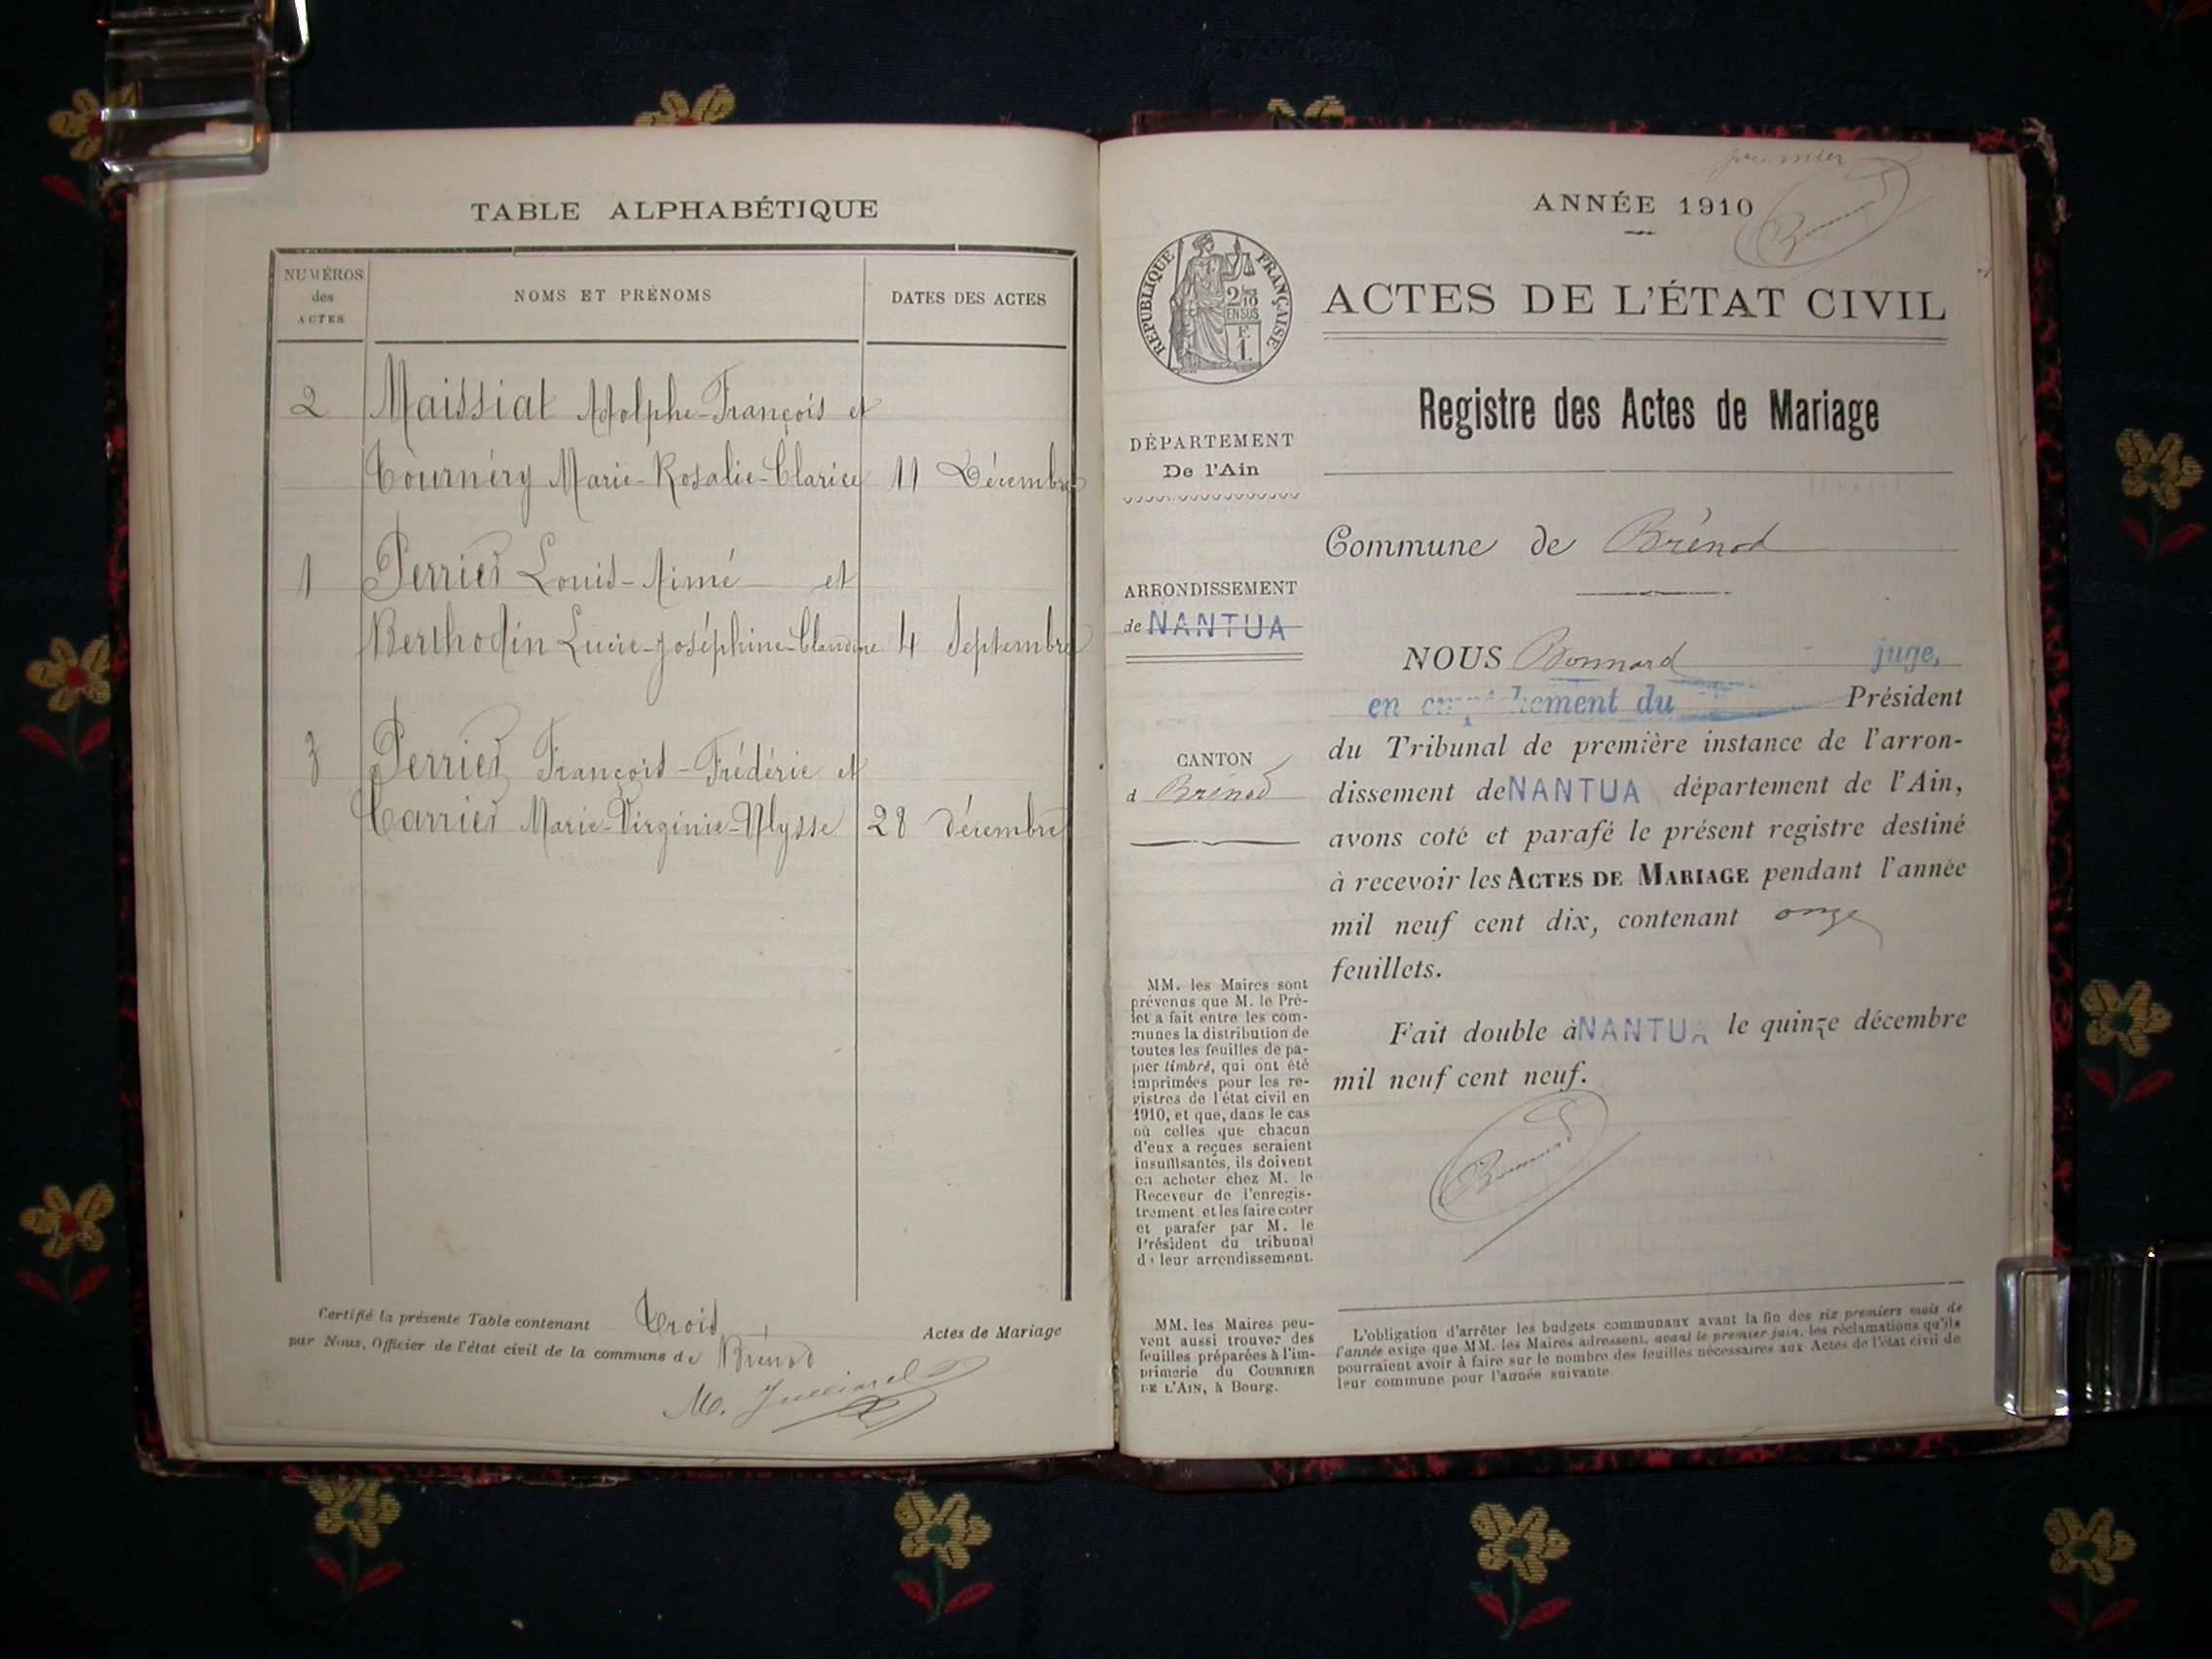 TABLE ALPHABÉTIQUE
NUMÉROS
des
ACTES
NOMS ET PRÉNOMS
DATES DES ACTES
2 Maissiat Adolphe-François et
Tournéry Marie-Rosalie-Clarice 11 Décembre
1 Perrier Louis-Aimé et
Berthodin Lucie-Joséphine-Claudine 4 Septembre
3 Perrier François-Frédéric et
Carrier Marie-Virginie-Ulysse 28 décembre
Certifié la présente Table contenant trois Actes de Mariage
par Nous, Officier de l'état civil de la commune de Brénod
M. Juilliard
premier
ANNÉE 1910
RÉPUBLIQUE FRANÇAISE
2/10
EN SUS
F.
1.
ACTES DE L'ÉTAT CIVIL
Registre des Actes de Mariage
DÉPARTEMENT
De l'Ain
ARRONDISSEMENT
de NANTUA
CANTON
d Brénod
MM. les Maires sont
prévenus que M. le Pré-
fet a fait entre les com-
munes la distribution de
toutes les feuilles de pa-
pier timbré, qui ont été
imprimées pour les re-
gistres de l'état civil en
1910, et que, dans le cas
où celles que chacun
d'eux a reçues seraient
insuffisantes, ils doivent
en acheter chez M. le
Receveur de l'enregis-
trement et les faire coter
et parafer par M. le
Président du tribunal
de leur arrondissement.
MM. les Maires peu-
vent aussi trouver des
feuilles préparées à l'im-
primerie du COURRIER
DE L'AIN, à Bourg.
Commune de Brénod
NOUS Bonnard juge,
en empêchement du Président
du Tribunal de première instance de l'arron-
dissement de NANTUA département de l'Ain,
avons coté et parafé le présent registre destiné
à recevoir les ACTES DE MARIAGE pendant l'année
mil neuf cent dix, contenant onze
feuillets.
Fait double à NANTUA le quinze décembre
mil neuf cent neuf.
Bonnard
L'obligation d'arrêter les budgets communaux avant la fin des six premiers mois de
l'année exige que MM. les Maires adressent, avant le premier juin, les réclamations qu'ils
pourraient avoir à faire sur le nombre des feuilles nécessaires aux Actes de l'état civil de
leur commune pour l'année suivante.